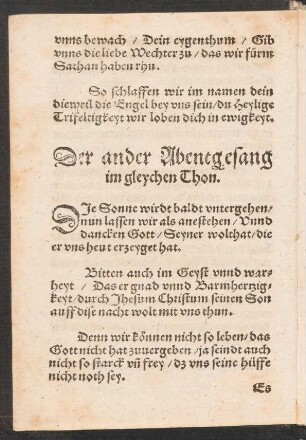 vnns bewach / Dein eygenthum / Gib
vnns die liebe Wechter zu / das wir fürm
Sathan haben rhu.
So schlaffen wir im namen dein
dieweil die Engel bey vns sein / du Heylige
Trifeltigkeyt wir loben dich in ewigkeyt.
Der ander Abentgesang
im gleychen Thon.
DIe Sonne wirdt baldt vntergehen /
nun lassen wir als anestehen / Vnnd
dancken Gott / Seyner wolthat / die
er vns heut erzeyget hat.
Bitten auch im Geyst vnnd war-
heyt / Das er gnad vnnd Barmhertzig-
keyt / durch Jhesum Christum seinen Son
auff dise nacht wolt mit vns thun.
Denn wir können nicht so leben / das
Gott nicht hat zuuergeben / ja seindt auch
nicht so starck vñ frey / dz vns seine hilffe
nicht noth sey.
Es